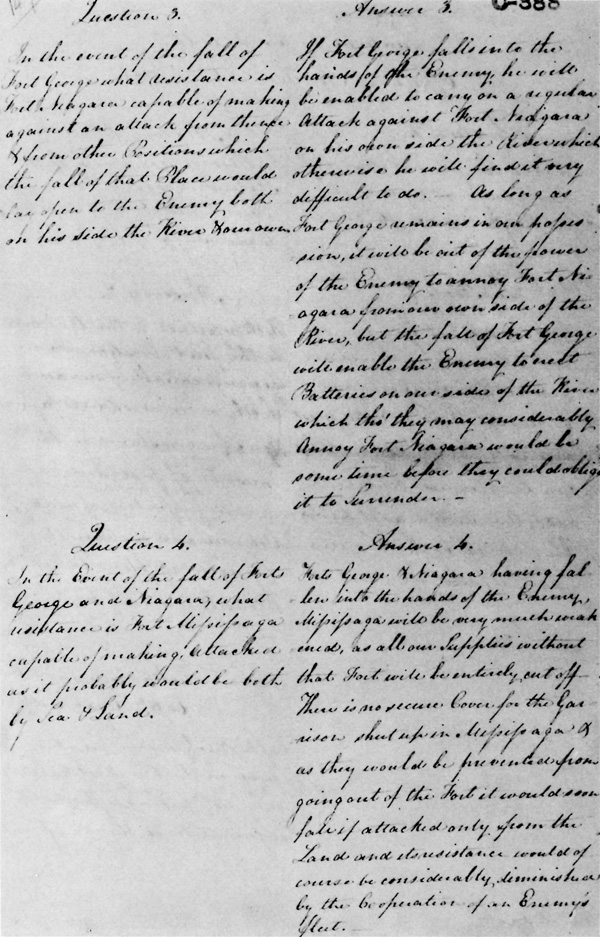 Question 3.
In the event of the fall of
Fort George what resistance is
Fort Niagara capable of making
against an attack from thence
& from other Positions which
the fall of that Place would
lay open to the Enemy both
on his side the River & our own.
Answer 3.
C-388
If Fort George falls into the
hands of the Enemy, he will
be enabled to carry on a regular
Attack against Fort Niagara
on his own side the River which
otherwise he will find it very
difficult to do. — As long as
Fort George remains in our posses-
sion, it will be out of the power
of the Enemy to annoy Fort Ni-
agara from our own side of the
River, but the fall of Fort George
will enable the Enemy to erect
Batteries on our side of the River
which tho' they may considerably
Annoy Fort Niagara would be
some time before they could oblige
it to Surrender. —
Question 4.
In the Event of the fall of Forts
George and Niagara, what
resistance is Fort Missisaga
capable of making, attacked
as it probably would be both
by Sea & Land.
Answer 4.
Forts George & Niagara having fal-
len into the hands of the Enemy,
Missisaga will be very much weak
ened, as all our Supplies without
that Fort will be entirely cut off
There is no secure Cover for the Gar-
rison shut up in Missisaga &
as they would be prevented from
going out of the Fort it would soon
fall if attacked only from the
Land and its resistance would of
course be considerably diminished
by the Cooperation of an Enemy's
fleet. —